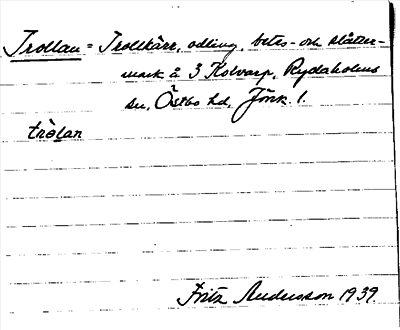 Trollan = Trollkärr, odling, betes- och slåtter-
mark å 3 Kolvarp, Rydaholms
sn, Östbo hd, Jönk. l.
trò̀lan
Fritz Andersson 1939.